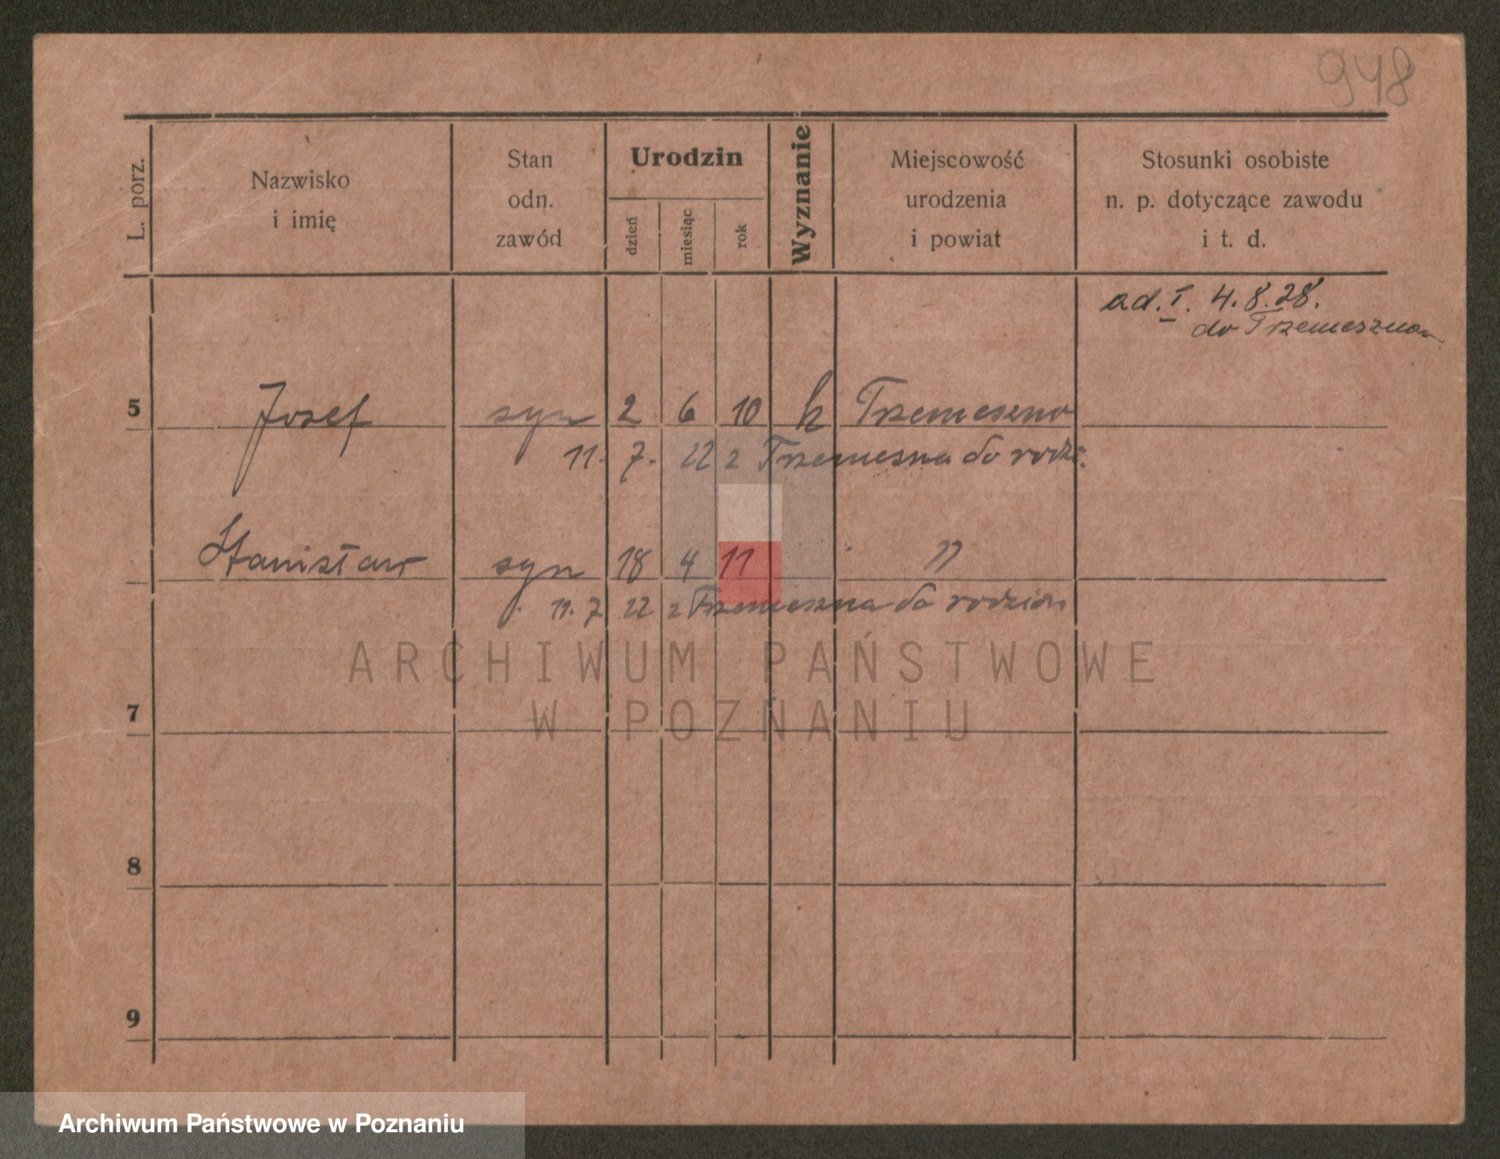 948
L. porz.
Nazwisko
i imię
Stan
odn.
zawód
Urodzin
dzień
miesiąc
rok
Wyznanie
Miejscowość
urodzenia
i powiat
Stosunki osobiste
n. p. dotyczące zawodu
i t. d.
ad. I. 4.8.28.
do Trzemeszna
5 Josef syn 2 6 10 k Trzemeszno
11. 7. 22 z Trzemeszna do rodz.
Stanisław syn 18 4 11 "
11. 7 22 z Trzemeszna do rodzic.
ARCHIWUM PAŃSTWOWE
W POZNANIU
7
8
9
Archiwum Państwowe w Poznaniu